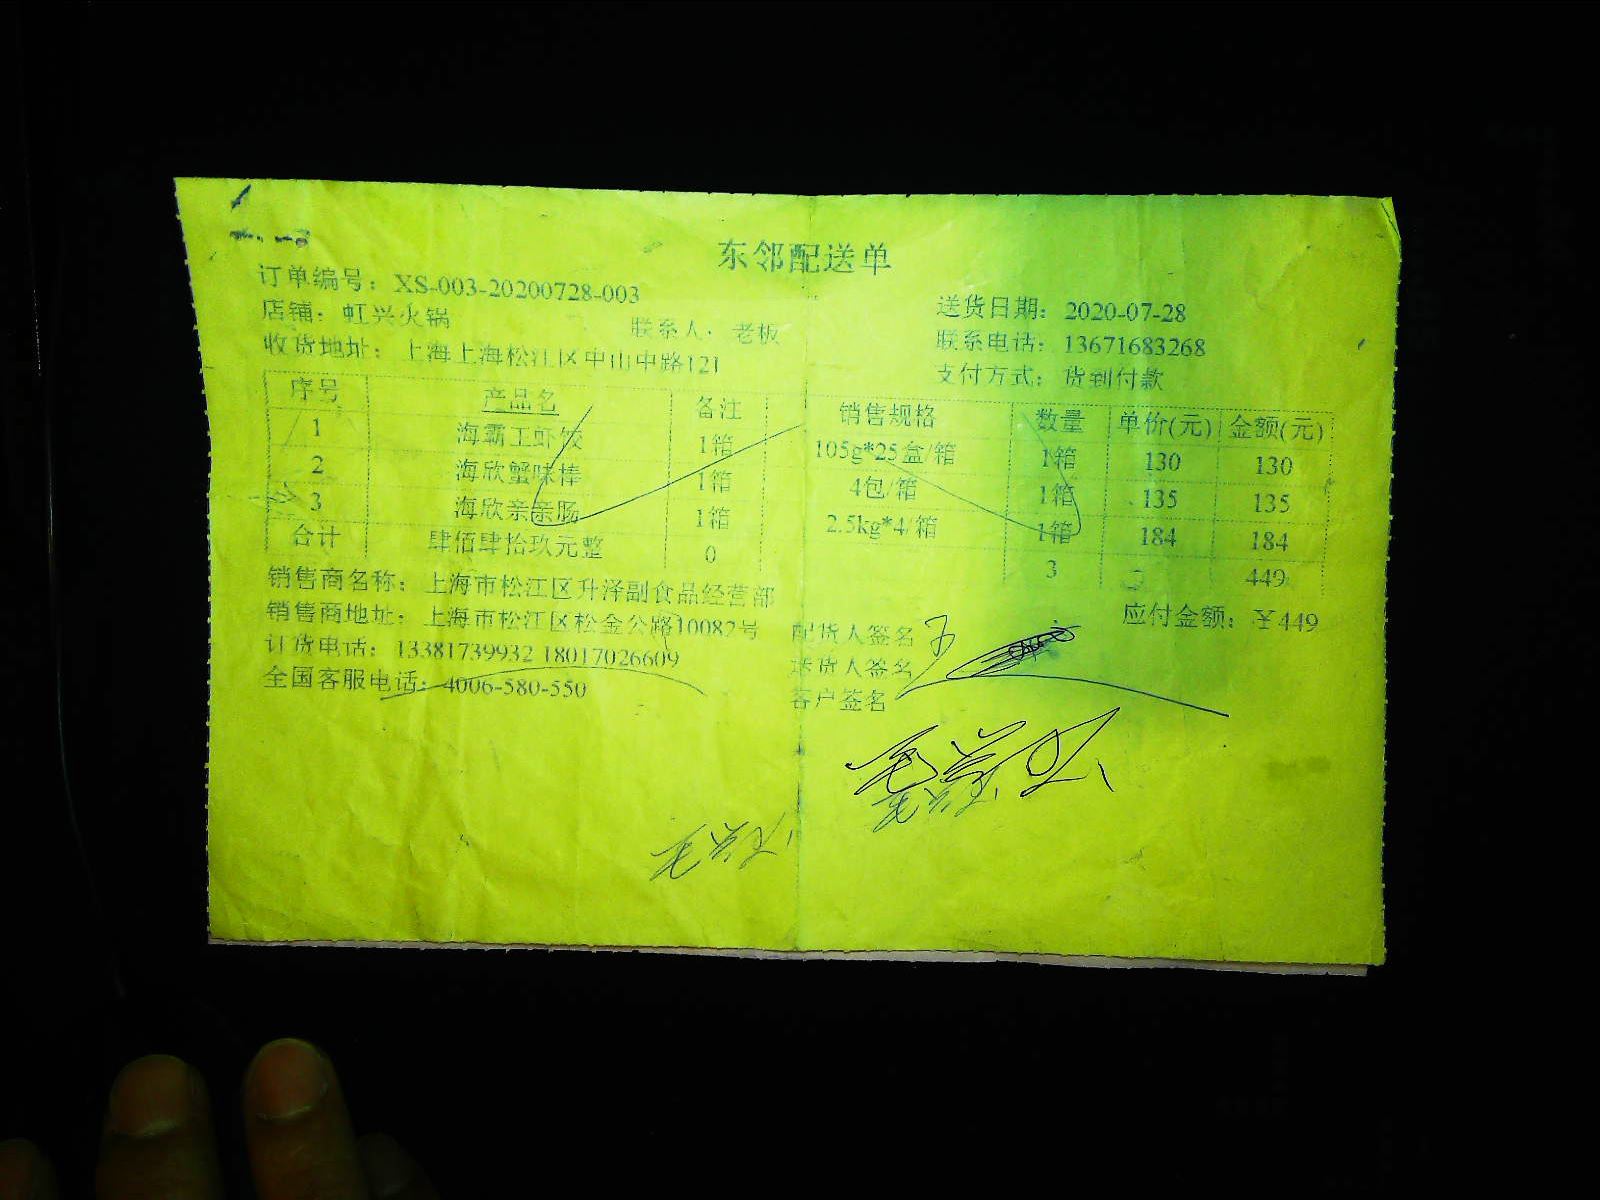 东邻配送单
订单编号：XS-003-20200728-003
送货日期：2020-07-28
店铺：虹兴火锅 联系人：老板 联系电话：13671683268
收货地址：上海上海松江区中山中路121 支付方式：货到付款
序号 产品名 备注 销售规格 数量 单价(元) 金额(元)
1 海霸王虾饺 1箱 105g*25盒/箱 1箱 130 130
2 海欣蟹味棒 1箱 4包/箱 1箱 135 135
3 海欣亲亲肠 1箱 2.5kg*4/箱 1箱 184 184
合计 肆佰肆拾玖元整 0 3 449
销售商名称：上海市松江区升泽副食品经营部 应付金额：￥449
销售商地址：上海市松江区松金公路10082号 配货人签名
订货电话：13381739932 18017026609 送货人签名
全国客服电话：4006-580-550 客户签名